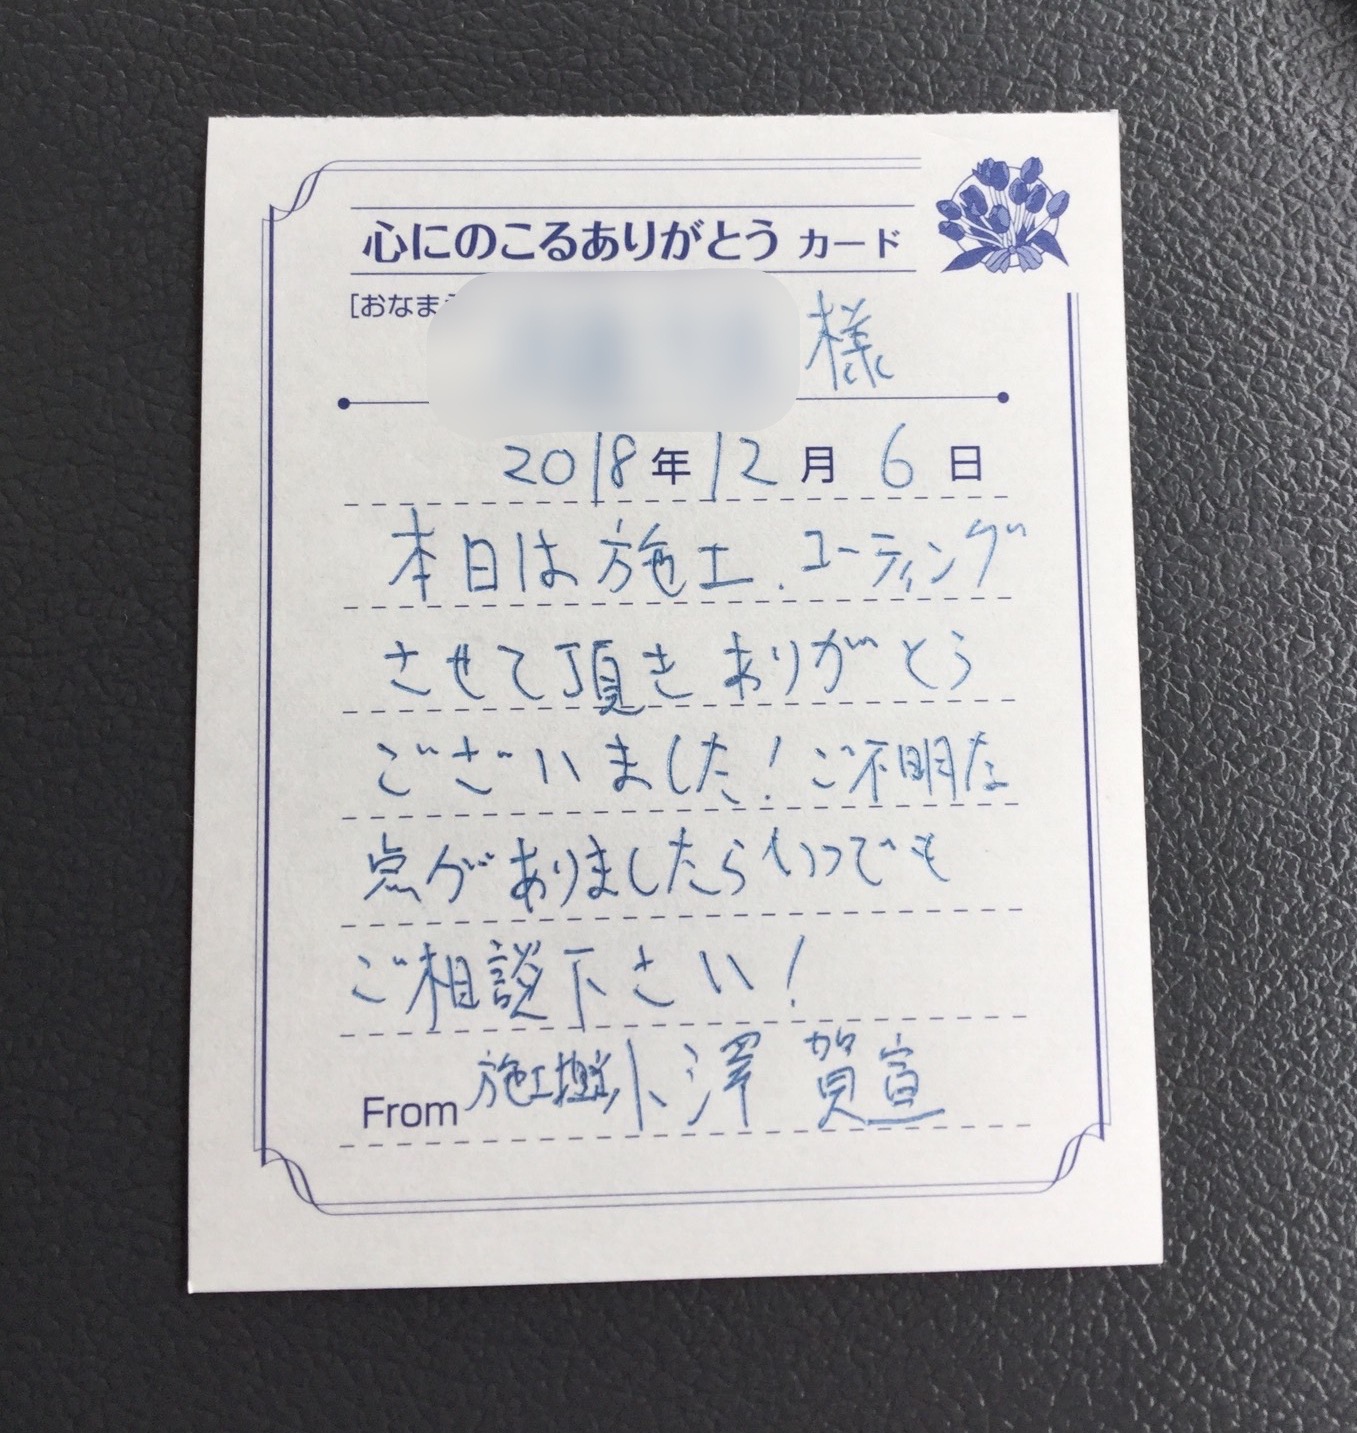 心にのこるありがとう カード
[おなまえ
様
2018年12月6日
本日は施工、コーティング
させて頂き ありがとう
ございました！ご不明な
点がありましたらいつでも
ご相談下さい！
From 施工担当 小澤 賀宣